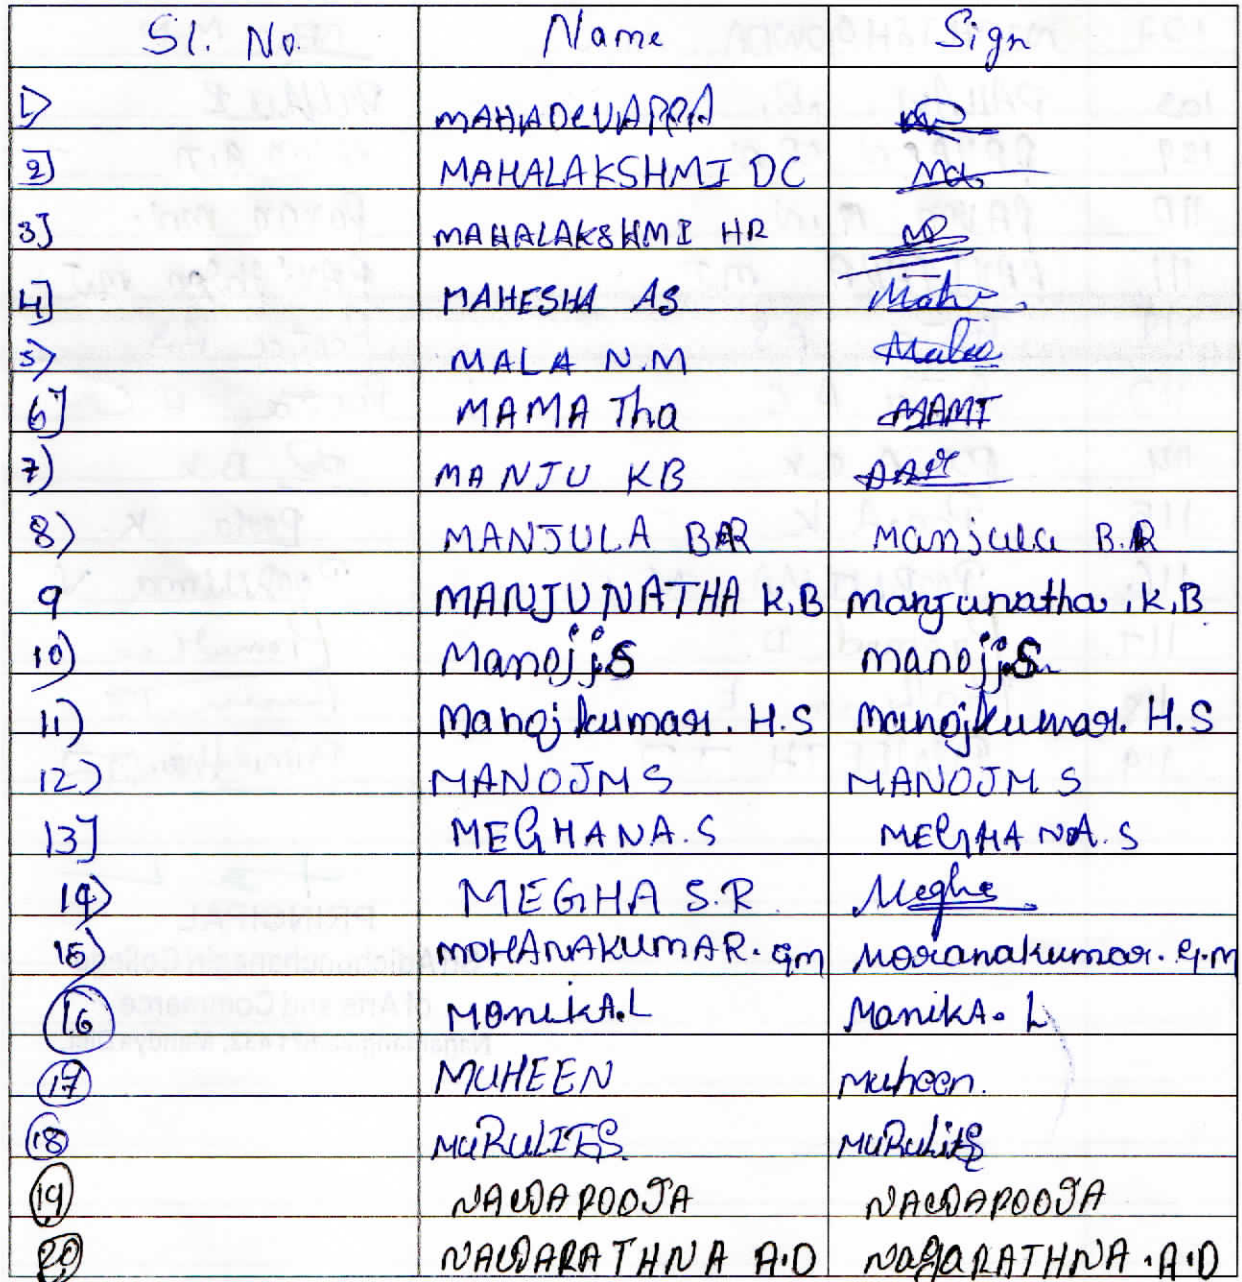 Sl. No. Name Sign
1) MAHADEVAPPA
2] MAHALAKSHMI DC
3] MAHALAKSHMI HR
4] MAHESHA AS
5) MALA N.M Mala
6] MAMA Tha MAMT
7) MANJU KB
8) MANJULA BR Manjula B.R
9 MANJUNATHA K.B Manjunatha.K.B
10) Manojj.S manojj.S
11) Manojkumar. H.S Manojkumar. H.S
12) MANOJM S MANOJM S
13] MEGHANA.S MEGHANA.S
14) MEGHA S.R Megha
15) MOHANAKUMAR. G.M
16 MonikA.L MonikA. L
17 MUHEEN Muheen.
18
19 NAGAPOOJA NAGAPOOJA
20 NAGARATHNA A.D NAGARATHNA .A.D